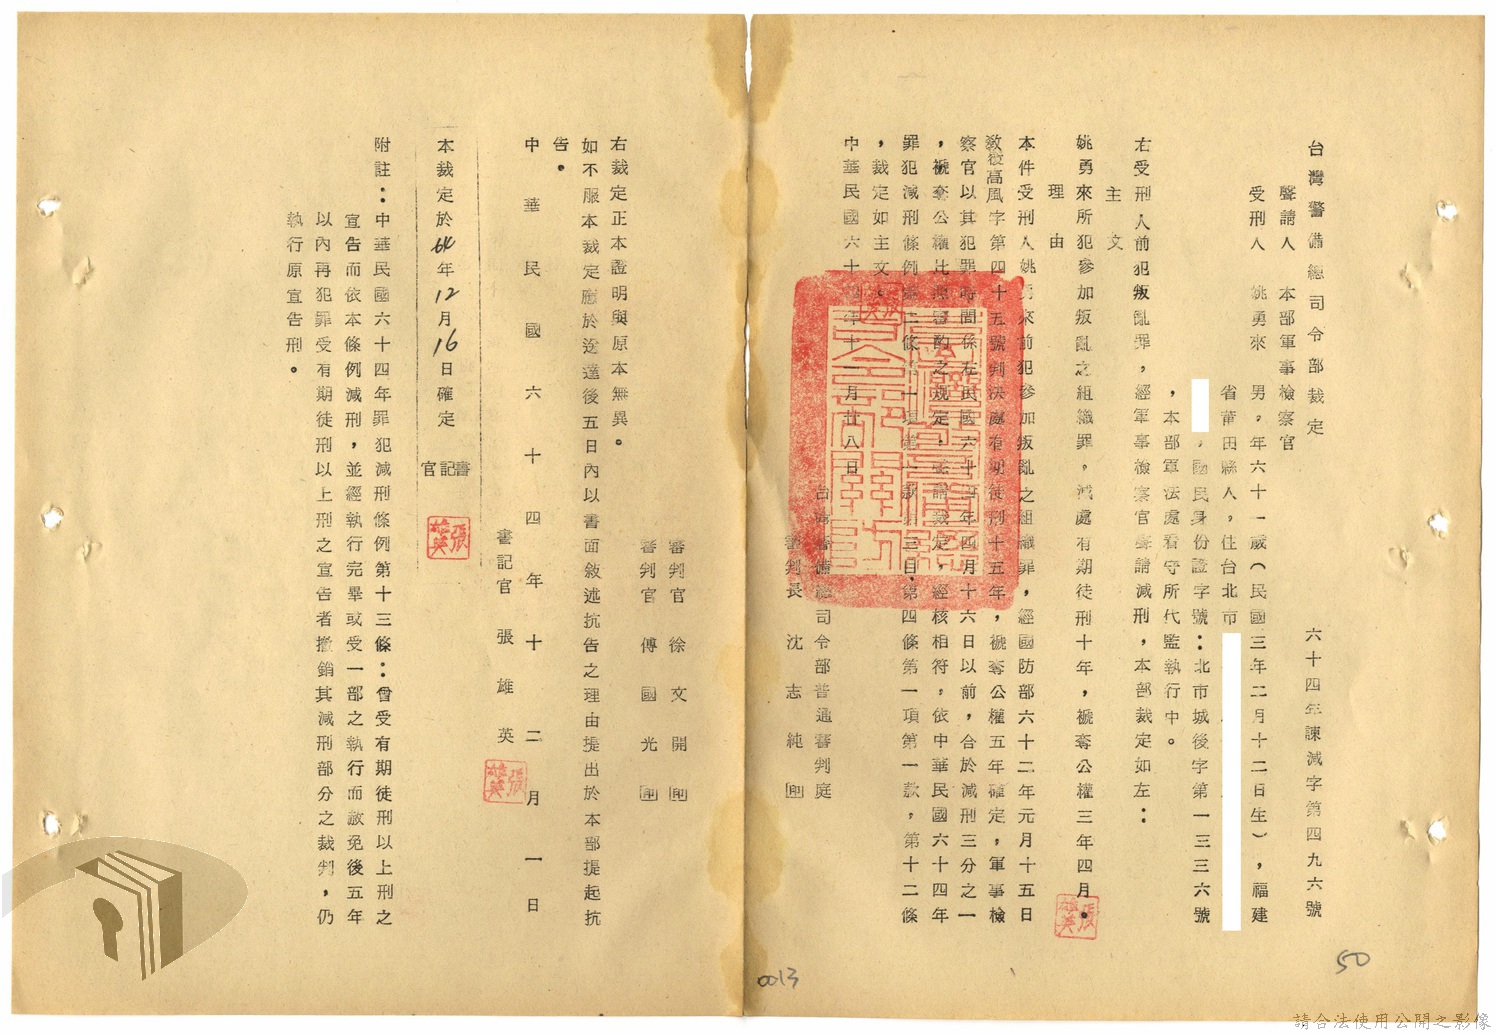 台灣警備總司令部裁定 六十四年諫減字第四九六號
聲請人 本部軍事檢察官
受刑人 姚勇來 男，年六十一歲（民國三年二月十二日生），福建
省莆田縣人，住台北市
，國民身份證字號：北市城後字第一三三六號
，本部軍法處看守所代監執行中。
右受刑人前犯叛亂罪，經軍事檢察官聲請減刑，本部裁定如左：
主 文
姚勇來所犯參加叛亂之組織罪，減處有期徒刑十年，褫奪公權三年四月。
理 由
本件受刑人姚勇來前犯參加叛亂之組織罪，經國防部六十二年元月十五日
教復高風字第四十五號判決處有期徒刑十五年，褫奪公權五年確定，軍事檢
察官以其犯罪時間係在民國六十四年四月十六日以前，合於減刑三分之一
，褫奪公權比照審酌之規定，聲請裁定，經核相符，依中華民國六十四年
罪犯減刑條例第二條第一項第一款第三目、第四條第一項第一款，第十二條
，裁定如主文。
中華民國六十四年十一月廿八日
台灣警備總司令部普通審判庭
審判長 沈志純 印
審判官 徐文開 印
審判官 傅國光 印
右裁定正本證明與原本無異。
如不服本裁定應於送達後五日內以書面敘述抗告之理由提出於本部提起抗
告。
書記官 張雄英
中華民國六十四年十二月一日
本裁定於64年12月16日確定 書記官
附註：中華民國六十四年罪犯減刑條例第十三條：曾受有期徒刑以上刑之
宣告而依本條例減刑，並經執行完畢或受一部之執行而赦免後五年
以內再犯罪受有期徒刑以上刑之宣告者撤銷其減刑部分之裁判，仍
執行原宣告刑。
張雄英
張雄英
張雄英
0013
50
請合法使用公開之影像